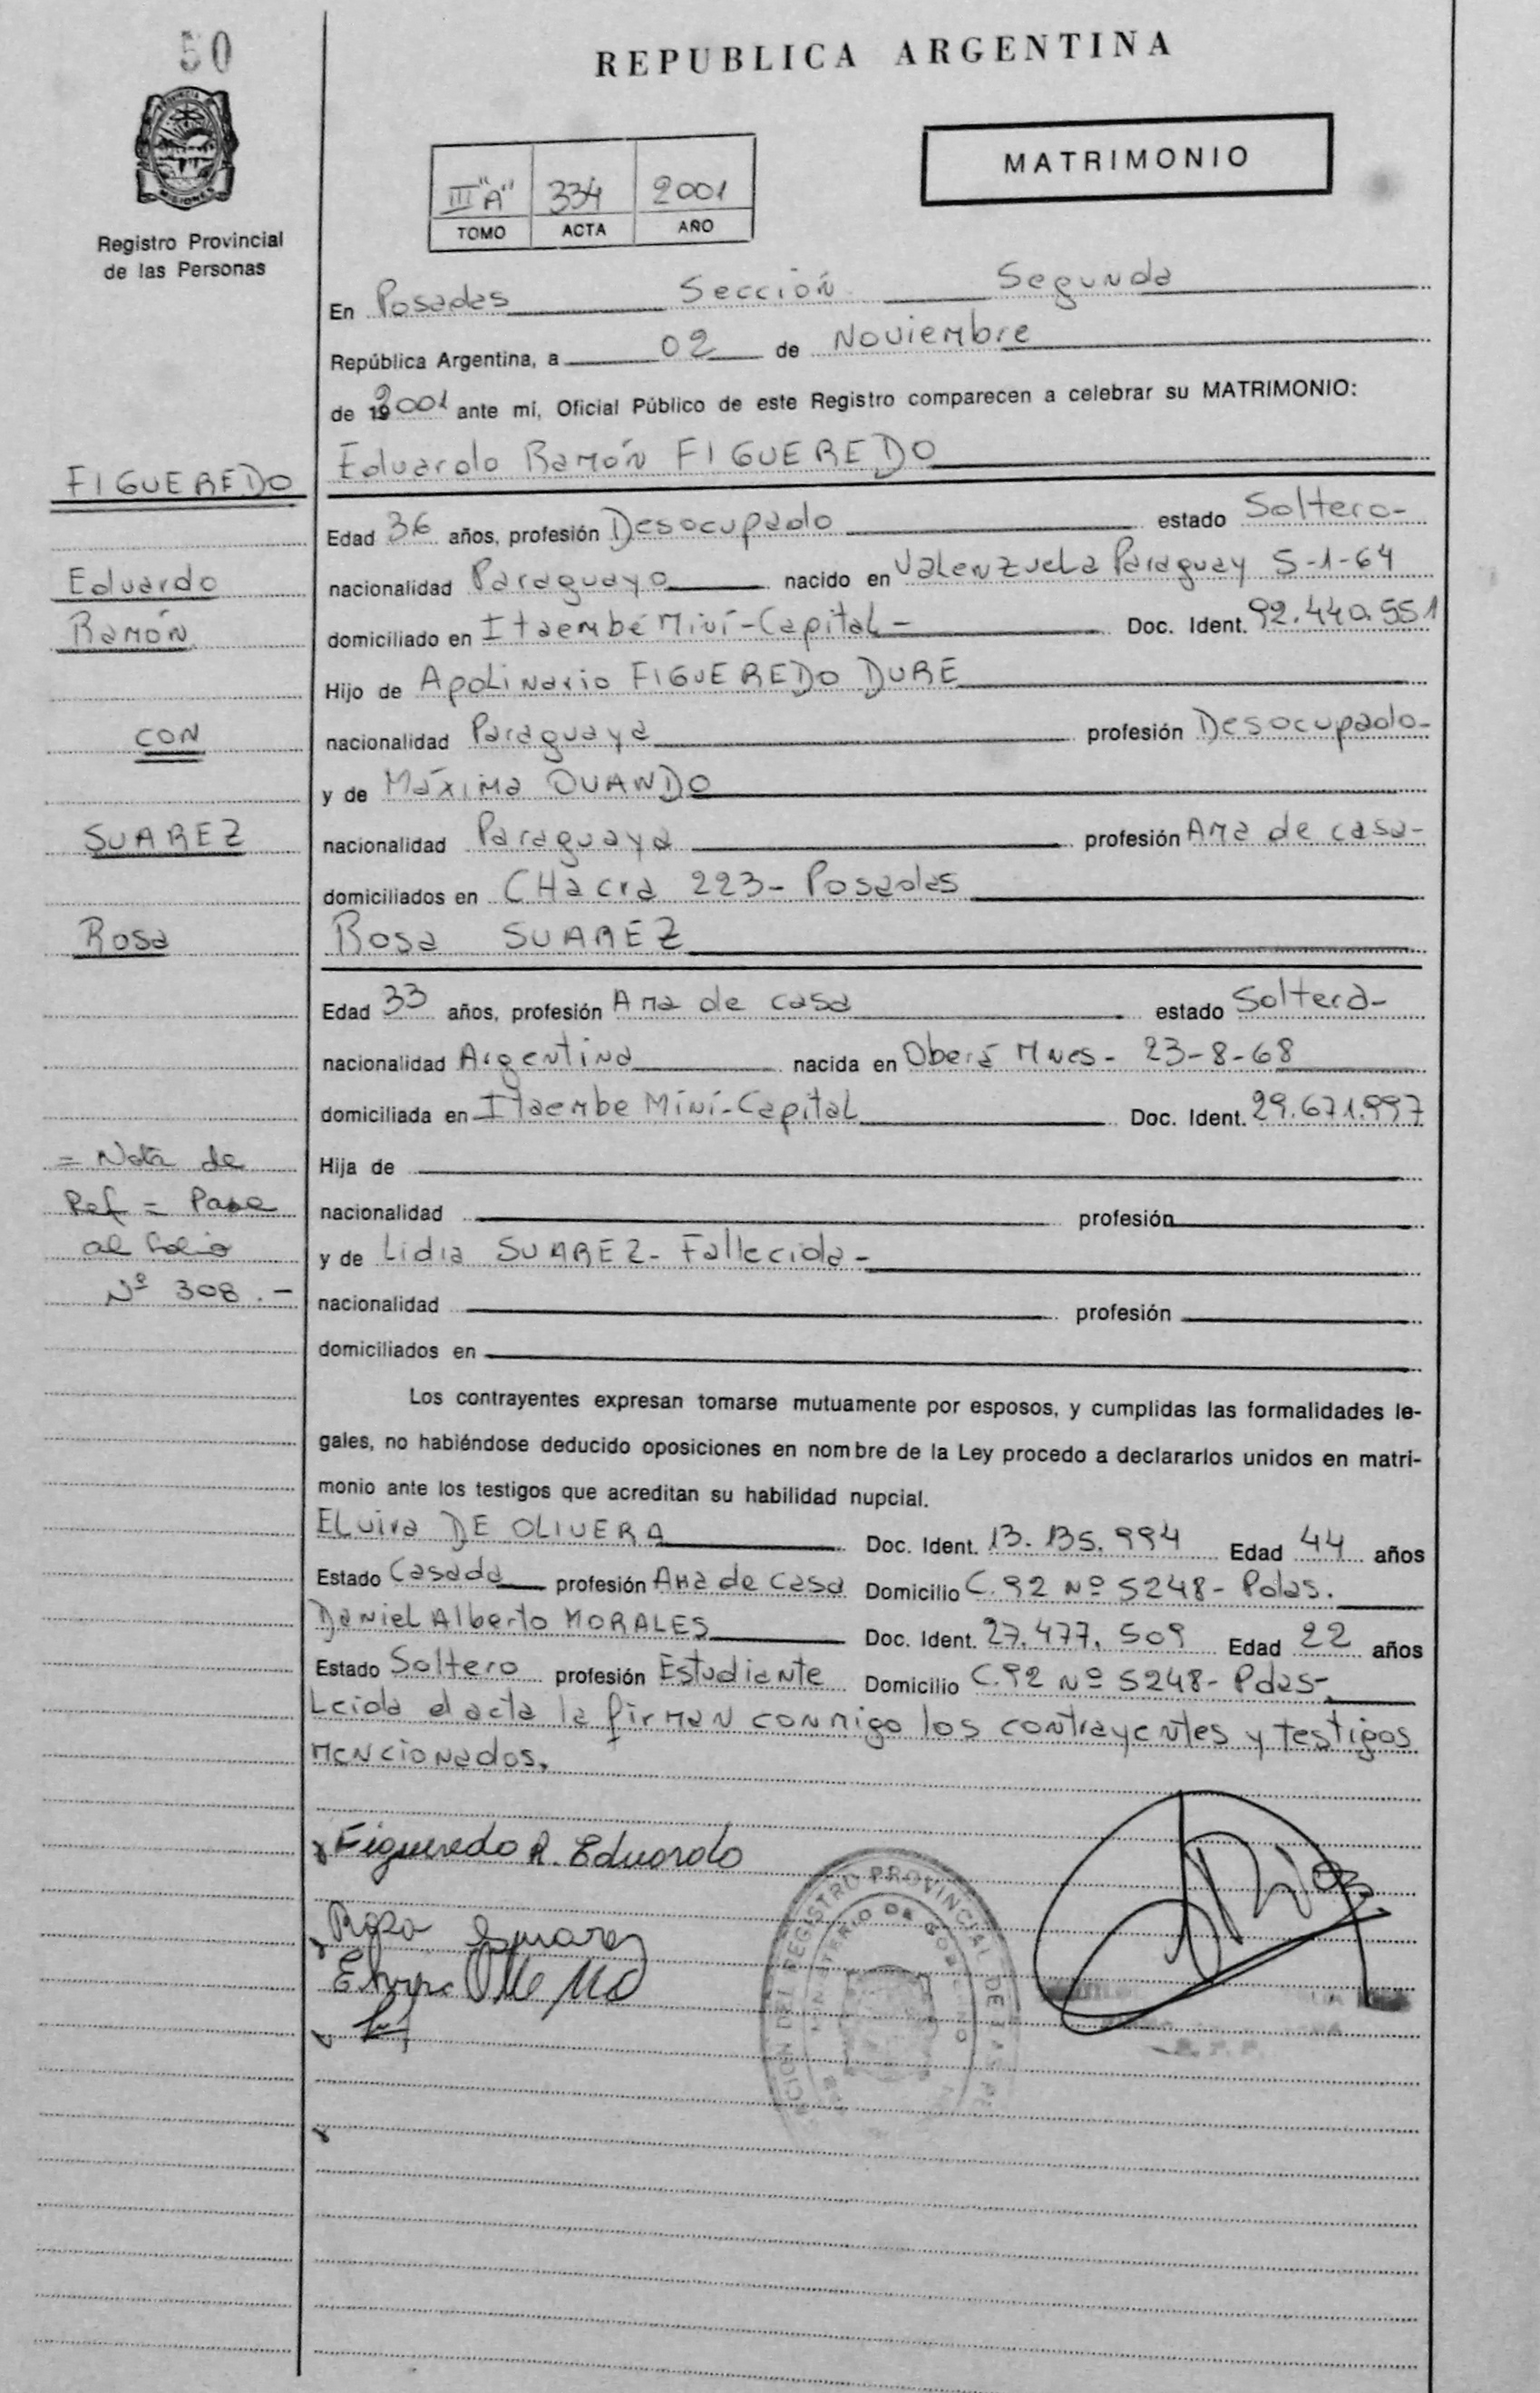 50
REPUBLICA ARGENTINA
MATRIMONIO
III "A" 334 2001
TOMO ACTA AÑO
PROVINCIA DE
MISIONES
Registro Provincial
de las Personas
En Posadas Sección Segunda
República Argentina, a 02 de Noviembre
de 2001 ante mí, Oficial Público de este Registro comparecen a celebrar su MATRIMONIO:
Eduardo Ramón FIGUEREDO
FIGUEREDO
Edad 36 años, profesión Desocupado estado Soltero-
Eduardo
nacionalidad Paraguayo nacido en Valenzuela Paraguay 5-1-64
Ramón
domiciliado en Itaembé Miní-Capital- Doc. Ident. 92.440.551
Hijo de Apolinario FIGUEREDO DURE
CON
nacionalidad Paraguaya profesión Desocupado-
y de Máxima OVANDO
SUAREZ
nacionalidad Paraguaya profesión Ama de casa-
domiciliados en CHacra 223- Posadas
Rosa
Rosa SUAREZ
Edad 33 años, profesión Ama de casa estado Soltera-
nacionalidad Argentina nacida en Oberá Mnes- 23-8-68
domiciliada en Itaembe Miní-Capital Doc. Ident. 29.671.997
= Nota de
Ref = Pase
al folio
Nº 308.-
Hija de
nacionalidad profesión
y de Lidia SUAREZ- Fallecida-
nacionalidad profesión
domiciliados en
Los contrayentes expresan tomarse mutuamente por esposos, y cumplidas las formalidades le-
gales, no habiéndose deducido oposiciones en nombre de la Ley procedo a declararlos unidos en matri-
monio ante los testigos que acreditan su habilidad nupcial.
Elvira DE OLIVERA Doc. Ident. 13.135.994 Edad 44 años
Estado Casada profesión Ama de casa Domicilio C.92 Nº 5248- Pdas.
Daniel Alberto MORALES Doc. Ident. 27.477.509 Edad 22 años
Estado Soltero profesión Estudiante Domicilio C.92 Nº 5248- Pdas-
Leida el acta la firman conmigo los contrayentes y testigos
mencionados.
Figueredo R. Eduardo
Rosa Suarez
REGISTRO PROVINCIAL DE LAS PE
MINISTERIO DE GOBIERNO